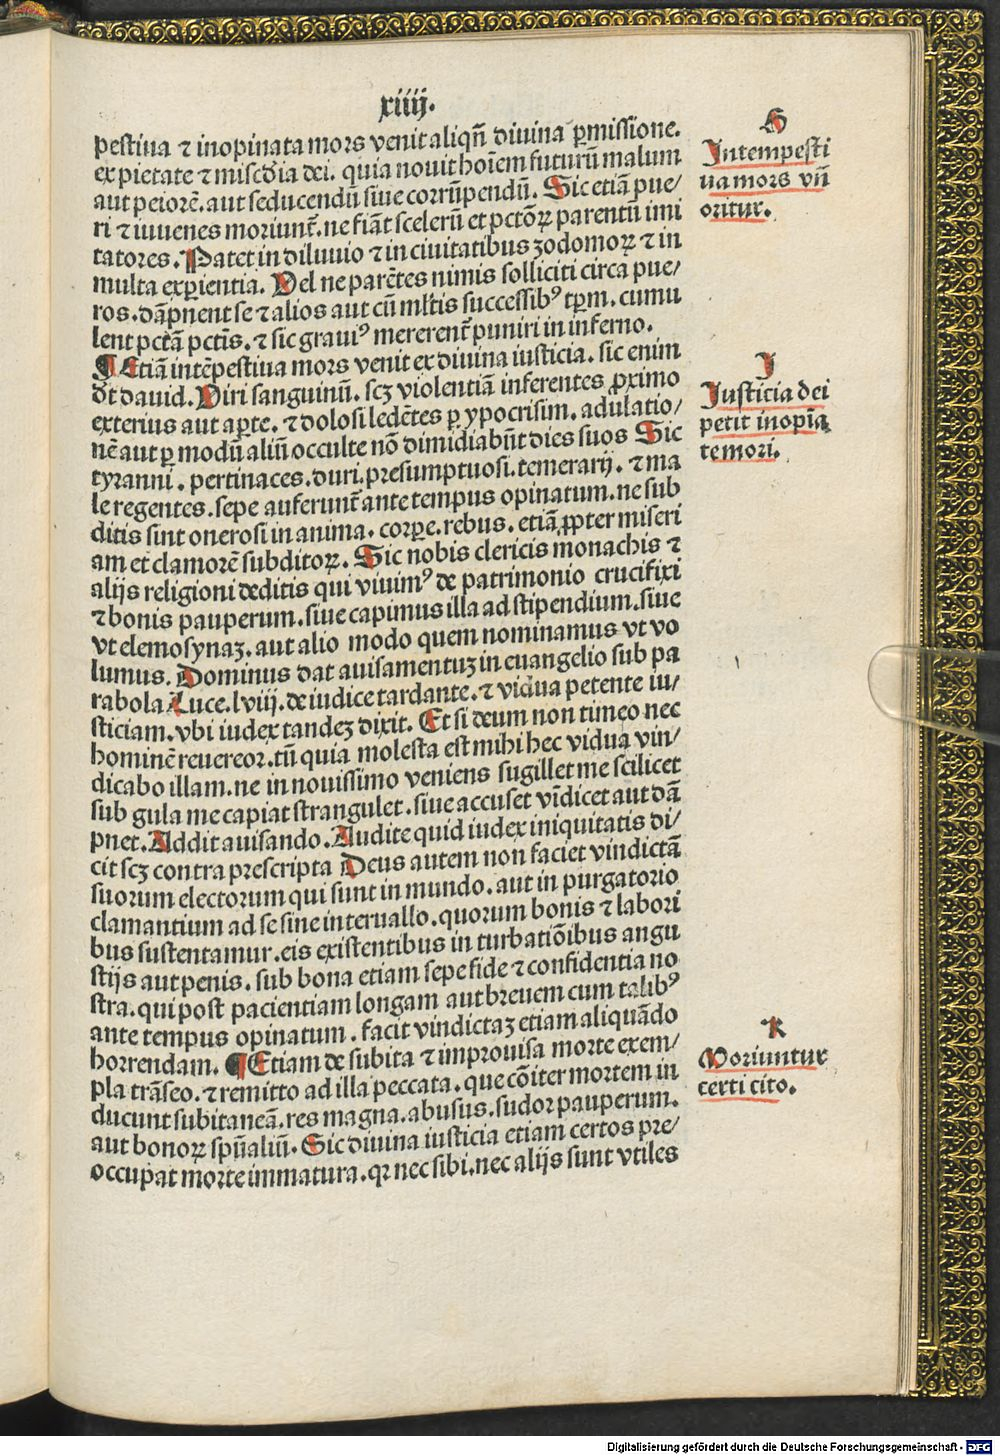 xiiij.
pestiua ⁊ inopinata mors venit aliqñ diuina ꝑmissione.
ex pietate ⁊ miscďia dei. quia nouit hoīem futurū malum
aut peiorē. aut seducendū siue corrūpendū. Sic etiā pue⸗
ri ⁊ iuuenes moriunt᷑. ne fiāt scelerū et pctōꝝ parentū imi
tatores. Patet in diluuio ⁊ in ciuitatibus zodomoꝝ ⁊ in
multa exꝑientia. Uel ne parētes nimis solliciti circa pue⸗
ros. dāpnent se ⁊ alios aut cū ml̓tis successibꝰ tꝑm. cumu
lent pctā pctīs. ⁊ sic grauiꝰ mererent᷑ puniri in inferno.
¶ Etiā intēpestiua mors venit ex diuina iusticia. sic enim
dt̄ dauid. Uiri sanguinū. scꝫ violentiā inferentes ꝓximo
exterius aut aꝑte. ⁊ dolosi ledētes ꝑ ypocrisim. adulatio⸗
nē aut ꝑ modū aliū occulte nō dimidiabūt dies suos Sic
tyranni. pertinaces. duri. presumptuosi. temerarij. ⁊ ma
le regentes. sepe auferunt᷑ ante tempus opinatum. ne sub
ditis sint onerosi in anima. corꝑe. rebus. etiā ꝓpter miseri
am et clamorē subditoꝝ. Sic nobis clericis monachis ⁊
alijs religioni deditis qui viuimꝰ de patrimonio crucifixi
⁊ bonis pauperum. siue capimus illa ad stipendium. siue
vt elemosynaꝫ. aut alio modo quem nominamus vt vo
lumus. Dominus dat auisamentuꝫ in euangelio sub pa
rabola Luce. lviij. de iudice tardante. ⁊ vidua petente iu⸗
sticiam. vbi iudex tandeꝫ dixit. Et si deum non timeo nec
hominē reuereor. tñ quia molesta est mihi hec vidua vin⸗
dicabo illam. ne in nouissimo veniens sugillet me scilicet
sub gula me capiat strangulet. siue accuset vīdicet aut dā
pnet. Addit auisando. Audite quid iudex iniquitatis di⸗
cit scꝫ contra prescripta Deus autem non faciet vindictā
suorum electorum qui sunt in mundo. aut in purgatorio
clamantium ad se sine interuallo. quorum bonis ⁊ labori
bus sustentamur. eis existentibus in turbatiōibus angu
stijs aut penis. sub bona etiam sepe fide ⁊ confidentia no
stra. qui post pacientiam longam aut breuem cum talibꝰ
ante tempus opinatum. facit vindictaꝫ etiam aliquādo
horrendam. ¶ Etiam de subita ⁊ improuisa morte exem⸗
pla trāseo. ⁊ remitto ad illa peccata. que cōiter mortem in
ducunt subitaneā. res magna. abusus. sudor pauperum.
aut bonoꝝ spūaliū. Sic diuina iusticia etiam certos pre⸗
occupat morte immatura. qꝛ nec sibi. nec alijs sunt vtiles
H
Intempesti
ua mors vñ
oritur.
I
Iusticia dei
petit inopīa
te mori.
K
Moriuntur
certi cito.
Digitalisierung gefördert durch die Deutsche Forschungsgemeinschaft - DFG